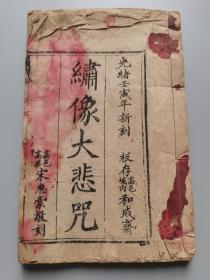 光緒壬寅年新刻
板存高邑城内和成齋
繡像大悲咒
高邑宋惠棠敬刻